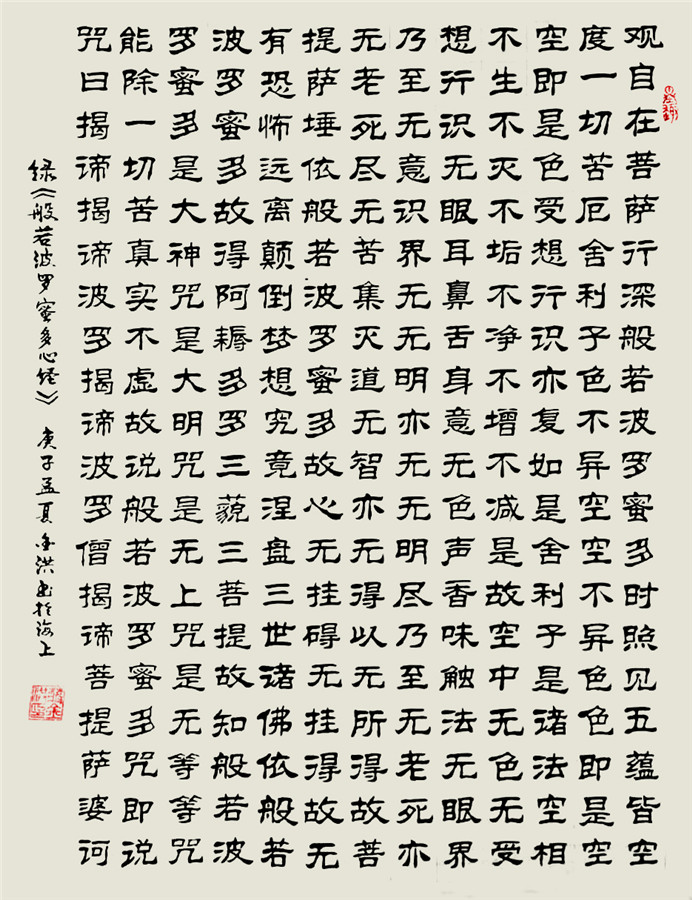 观自在菩萨行深般若波罗蜜多时照见五蕴皆空
度一切苦厄舍利子色不异空空不异色色即是空
空即是色受想行识亦复如是舍利子是诸法空相
不生不灭不垢不净不增不减是故空中无色无受
想行识无眼耳鼻舌身意无色声香味触法无眼界
乃至无意识界无无明亦无无明尽乃至无老死亦
无老死尽无苦集灭道无智亦无得以无所得故菩
提萨埵依般若波罗蜜多故心无挂碍无挂得故无
有恐怖远离颠倒梦想究竟涅盘三世诸佛依般若
波罗蜜多故得阿耨多罗三藐三菩提故知般若波
罗蜜多是大神咒是大明咒是无上咒是无等等咒
能除一切苦真实不虚故说般若波罗蜜多咒即说
咒曰揭谛揭谛波罗揭谛波罗僧揭谛菩提萨婆诃
绿《般若波罗蜜多心经》 庚子孟夏金洪书于海上